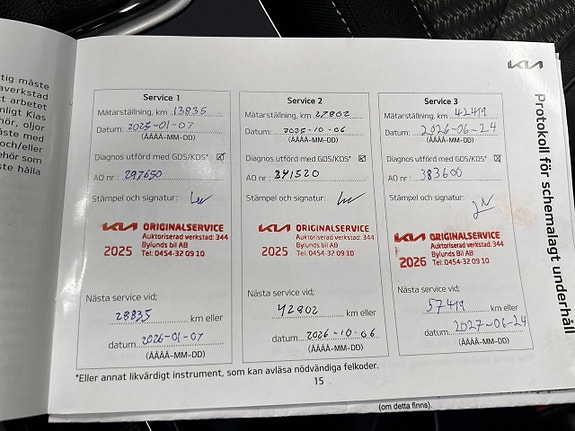 tig måste
averkstad
t arbetet
nligt Kias
hör, oljor
åste med
och/eller
ehör som
ste hålla
KIA
Protokoll för schemalagt underhåll
Service 1
Mätarställning, km 13835
Datum: 2025-01-07
(ÅÅÅÅ-MM-DD)
Diagnos utförd med GDS/KDS*
AO nr: 297650
Stämpel och signatur:
KIA ORIGINALSERVICE
Auktoriserad verkstad: 344
Bylunds bil AB
2025 Tel: 0454-32 09 10
Nästa service vid;
28835 km eller
datum 2026-01-07
(ÅÅÅÅ-MM-DD)
Service 2
Mätarställning, km 27802
Datum: 2025-10-06
(ÅÅÅÅ-MM-DD)
Diagnos utförd med GDS/KDS*
AO nr: 341520
Stämpel och signatur:
KIA ORIGINALSERVICE
Auktoriserad verkstad: 344
Bylunds bil AB
2025 Tel: 0454-32 09 10
Nästa service vid;
42802 km eller
datum 2026-10-06
(ÅÅÅÅ-MM-DD)
Service 3
Mätarställning, km 42419
Datum: 2026-06-24
(ÅÅÅÅ-MM-DD)
Diagnos utförd med GDS/KDS*
AO nr: 383600
Stämpel och signatur:
KIA ORIGINALSERVICE
Auktoriserad verkstad: 344
Bylunds bil AB
2026 Tel: 0454-32 09 10
Nästa service vid;
57419 km eller
datum 2027-06-24
(ÅÅÅÅ-MM-DD)
*Eller annat likvärdigt instrument, som kan avläsa nödvändiga felkoder.
15
(om detta finns).